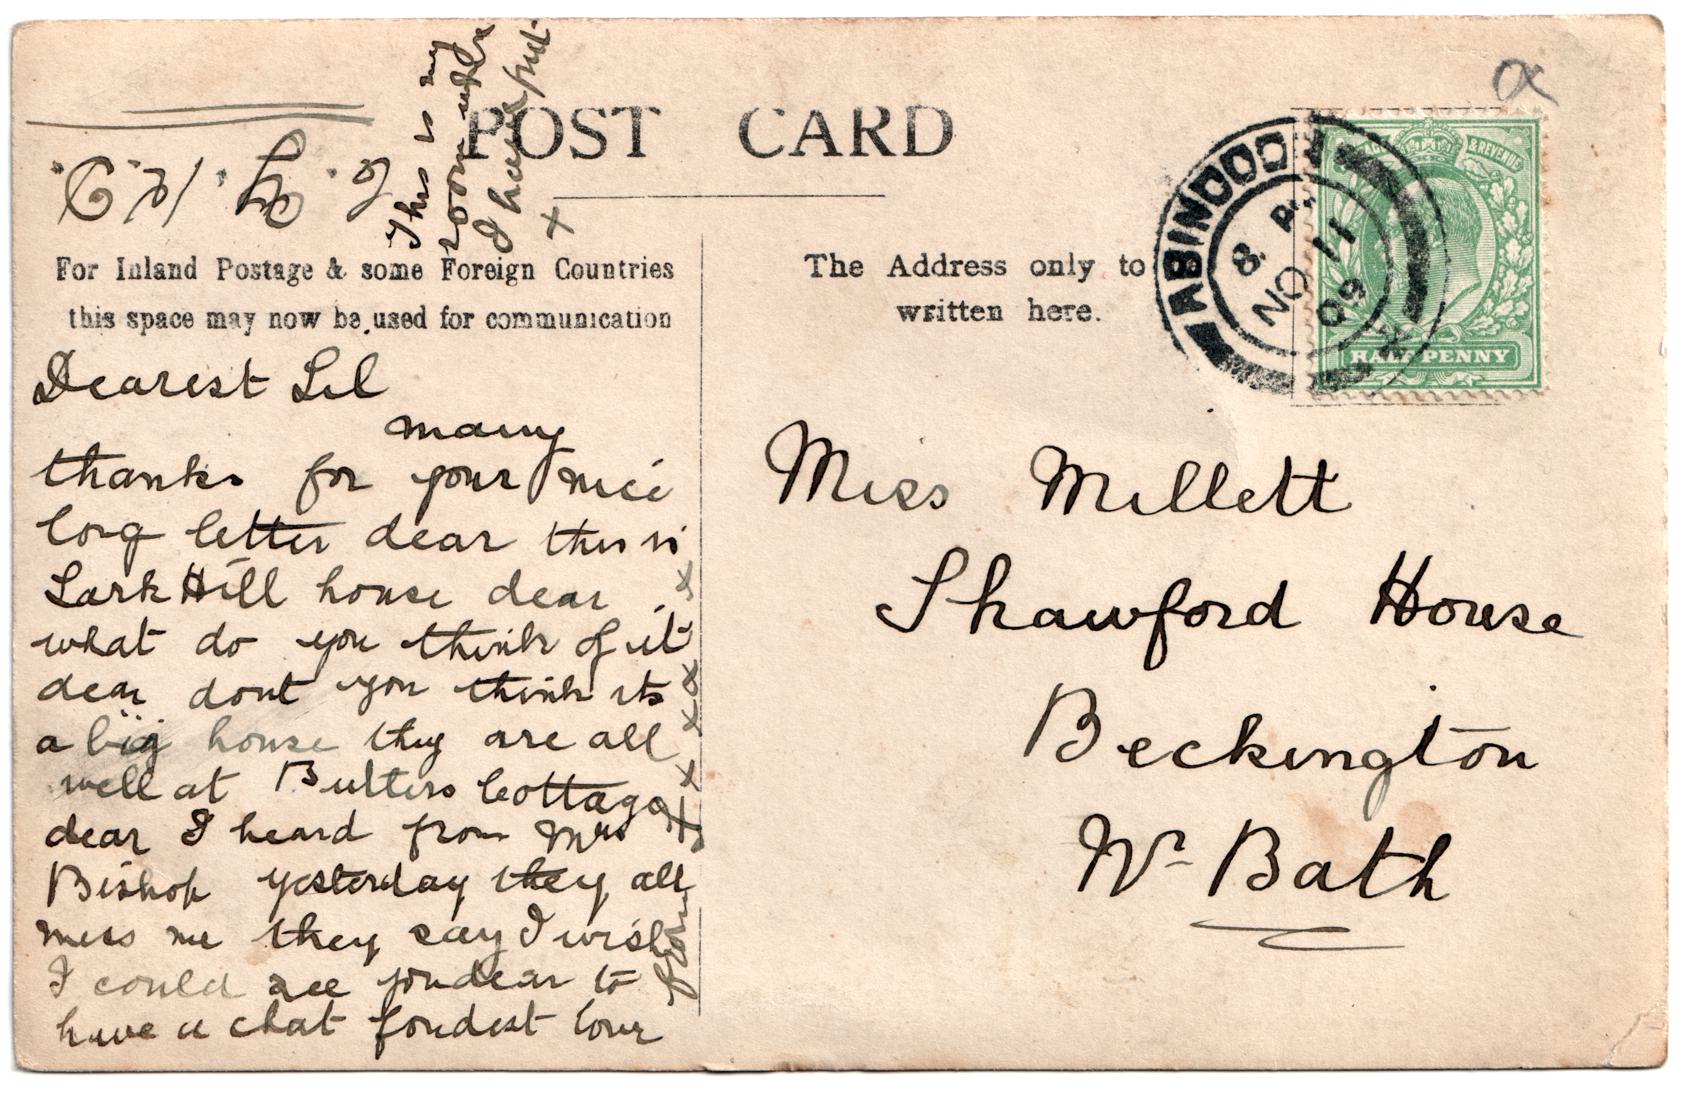 POST CARD
This is my
room
I have put
x
For Inland Postage & some Foreign Countries
this space may now be used for communication
The Address only to
written here.
ABINGDON
8 PM
NO 11
09
& REVENUE
HALF PENNY
Dearest Lil
many
thanks for your nice
long letter dear this is
Lark Hill house dear
what do you think of it
dear dont you think its
a big house they are all
well at Butlers Cottage
dear I heard from Mrs
Bishop yesterday they all
miss me they say I wish
I could see you dear to
have a chat fondest love
from
x x x x x x
Miss Millett
Shawford House
Beckington
Nr Bath